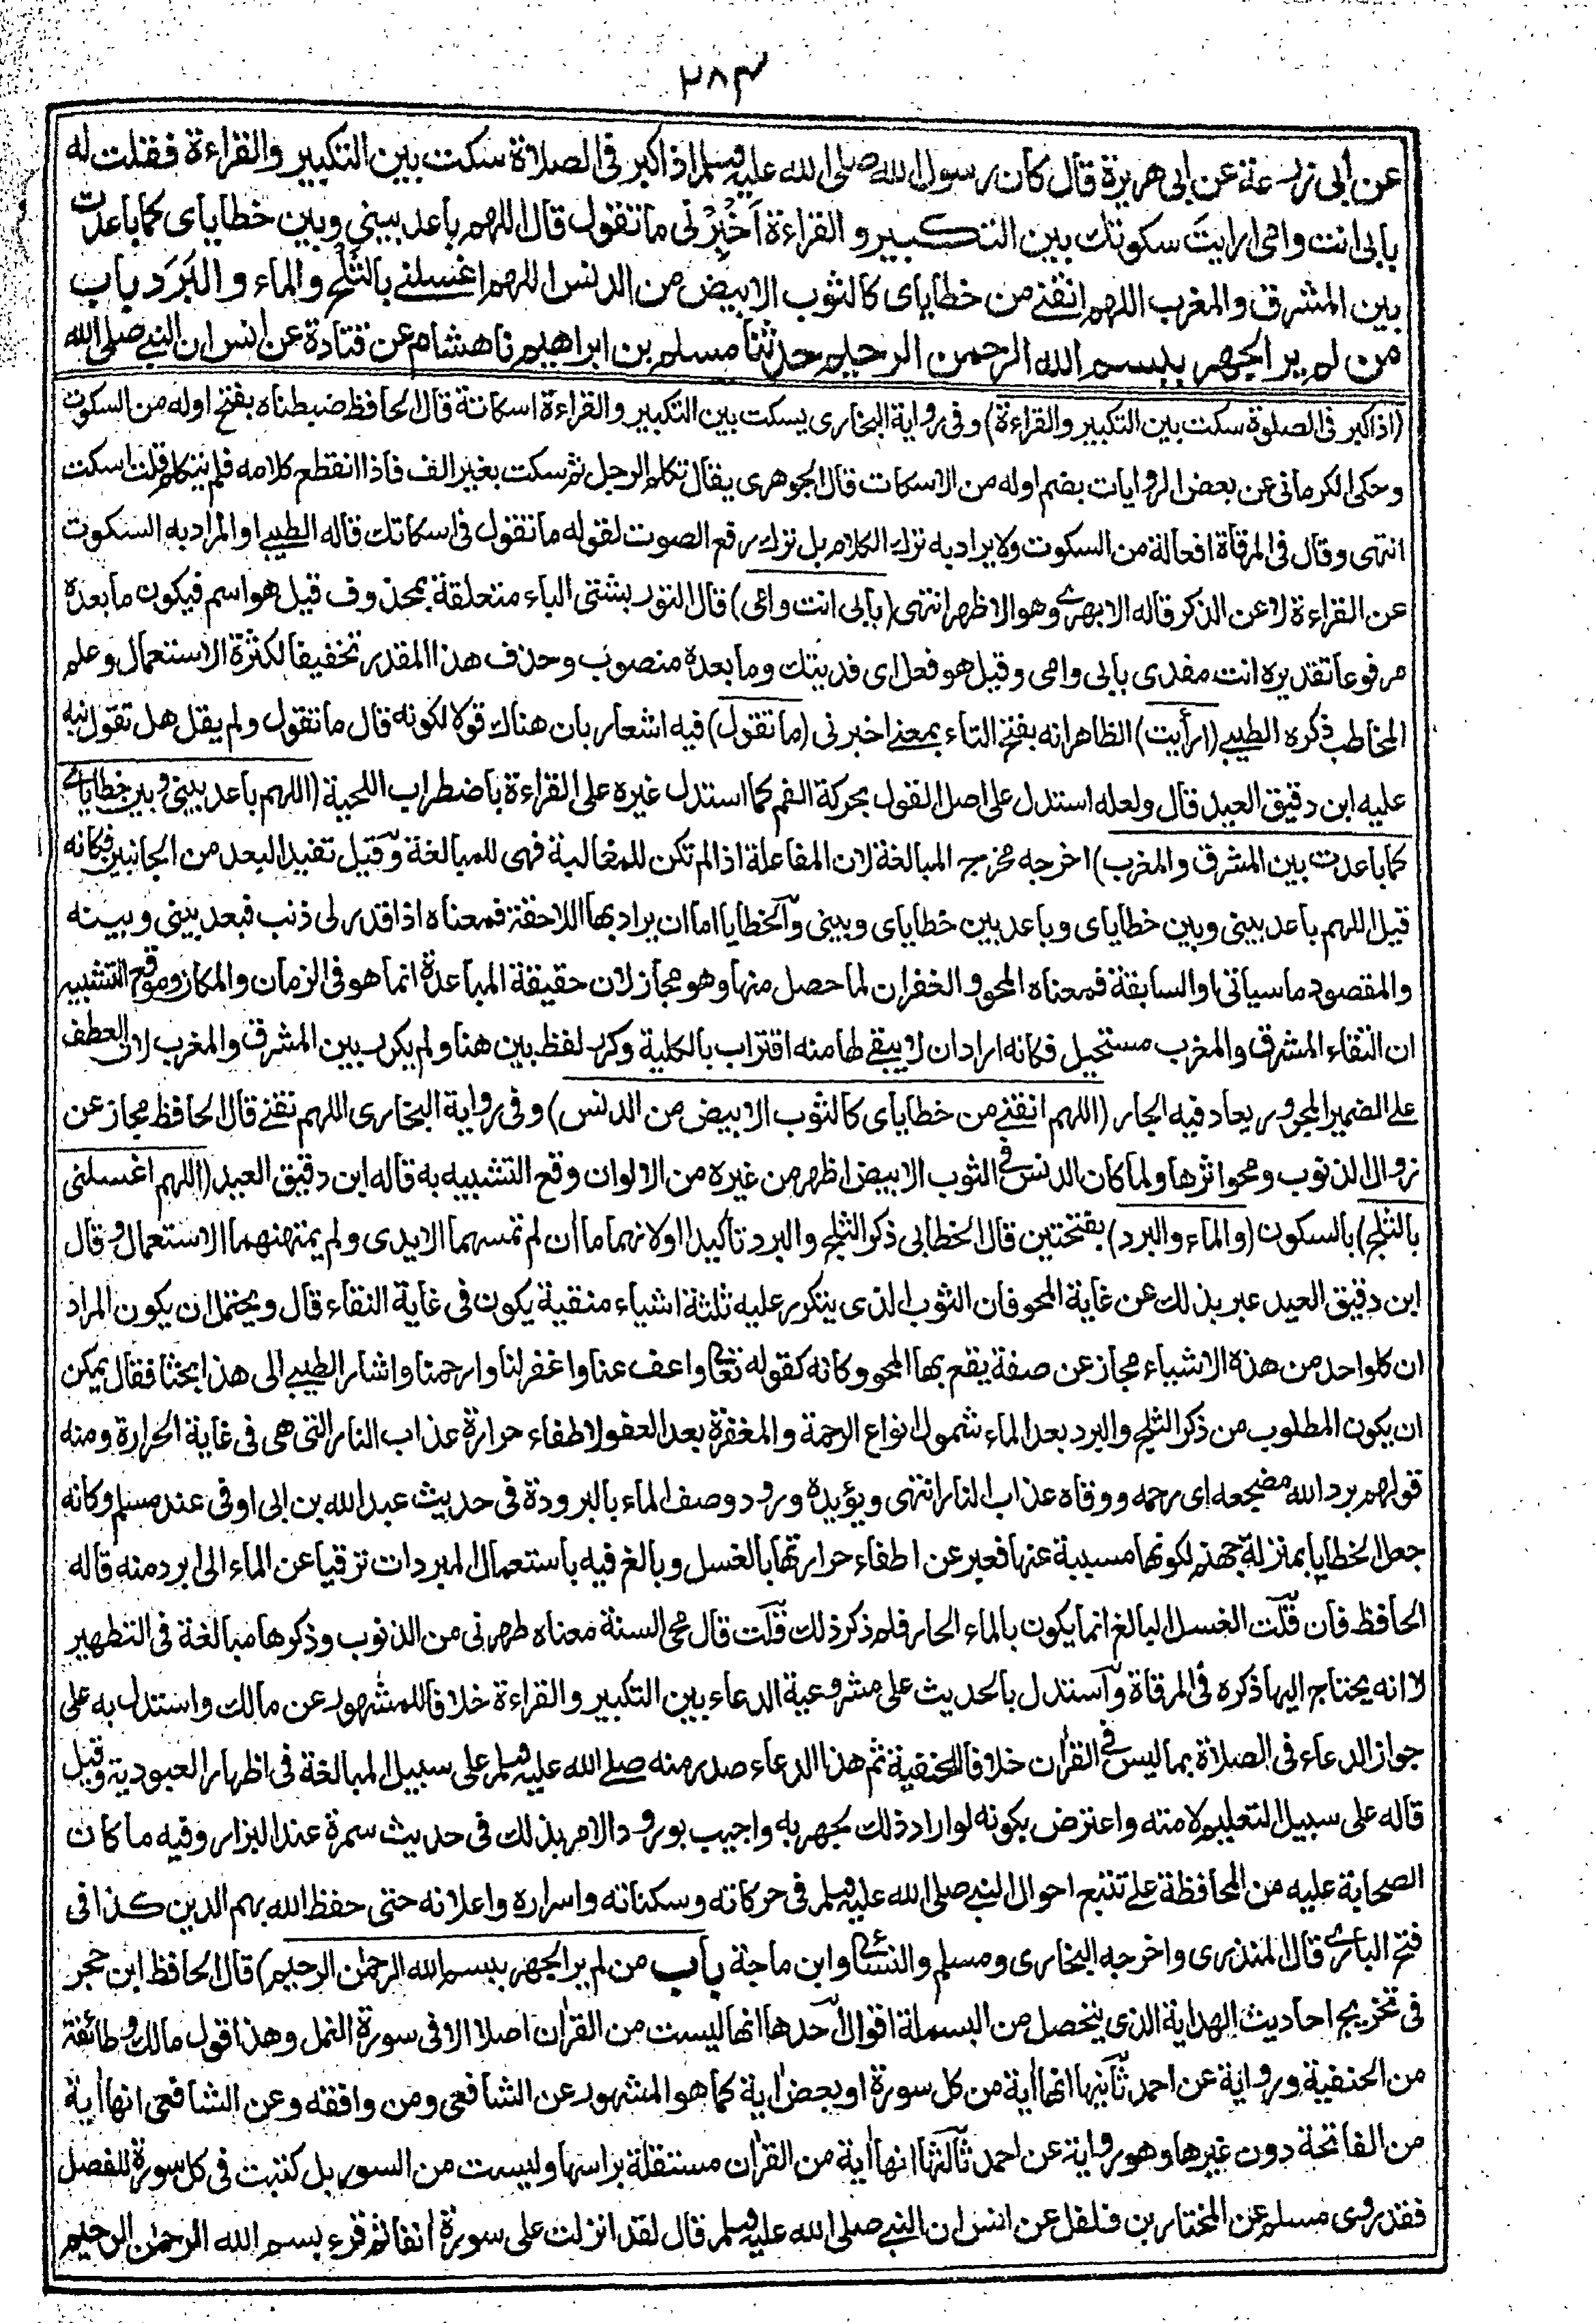 ٢٨٣
عن أبى زرعة عن ابى هريرة قال كان رسول الله صلى الله عليه وسلم اذا كبر فى الصلاة سكت بين التكبير والقراءة فقلت له
بابى انت وامى ارايتَ سكوتك بين التكبير و القراءة اَخْبِرْنى ما تقول قال اللهم باعد بينى وبين خطاياى كما باعدت
بين المشرق والمغرب اللهم انقنى من خطاياى كالثوب الابيض من الدنس اللهم اغسلنى بالثلج والماء و البَرَد باب
من لم ير الجهر ببسم الله الرحمن الرحيم حدثنا مسلم بن ابراهيم نا هشام عن قتادة عن انس ان النبى صلى الله
(اذا كبر فى الصلوة سكت بين التكبير والقراءة) وفى رواية البخارى يسكت بين التكبير والقراءة اسكاتة قال الحافظ ضبطناه بفتح اوله من السكوت
وحكى الكرمانى عن بعض الروايات بضم اوله من الاسكات قال الجوهرى يقال تكلم الرجل ثم سكت بغير الف فاذا انقطع كلامه فلم يتكلم قلت اسكت
انتهى وقال فى المرقاة افعالة من السكوت ولا يراد به ترك الكلام بل ترك رفع الصوت لقوله ما تقول فى اسكاتك قاله الطيبى او المراد به السكوت
عن القراءة لا عن الذكر قاله الابهرى وهو الاظهر انتهى (بابى انت وامى) قال التوربشتى الباء متعلقة بمحذوف قيل هو اسم فيكون ما بعده
مرفوعا تقديره انت مفدى بابى وامى وقيل هو فعل اى فديتك وما بعده منصوب وحذف هذا المقدر تخفيفا لكثرة الاستعمال وعلم
المخاطب ذكره الطيبى (ارأيت) الظاهر انه بفتح التاء بمعنى اخبرنى (ما تقول) فيه اشعار بان هناك قولا لكونه قال ما تقول ولم يقل هل تقول نبه
عليه ابن دقيق العيد قال ولعله استدل على اصل القول بحركة الفم كما استدل غيره على القراءة باضطراب اللحية (اللهم باعد بينى وبين خطاياى
كما باعدت بين المشرق والمغرب) اخرجه مخرج المبالغة لان المفاعلة اذا لم تكن للمغالبة فهى للمبالغة وقيل تفيد البعد من الجانبين فكانه
قيل اللهم باعد بينى وبين خطاياى وباعد بين خطاياى وبينى والخطايا اما ان يراد بها اللاحقة فمعناه اذا قدر لى ذنب فبعد بينى وبينه
والمقصود ما سياتى او السابقة فمعناه المحو والغفران لما حصل منها وهو مجاز لان حقيقة المباعدة انما هو فى الزمان والمكان وموقع التشبيه
ان التقاء المشرق والمغرب مستحيل فكانه اراد ان لا يبقى لها منه اقتراب بالكلية وكرر لفظ بين هنا ولم يكرر بين المشرق والمغرب لان العطف
على الضمير المجرور يعاد فيه الجار (اللهم انقنى من خطاياى كالثوب الابيض من الدنس) وفى رواية البخارى اللهم نقنى قال الحافظ مجاز عن
زوال الذنوب ومحو اثرها ولما كان الدنس فى الثوب الابيض اظهر من غيره من الالوان وقع التشبيه به قاله ابن دقيق العيد (اللهم اغسلنى
بالثلج) بالسكون (والماء والبرد) بفتحتين قال الخطابى ذكر الثلج والبرد تأكيد او لانهما ماان لم تمسهما الايدى ولم يمتهنهما الاستعمال وقال
ابن دقيق العيد عبر بذلك عن غاية المحو فان الثوب الذى يتكرر عليه ثلثة اشياء منقية يكون فى غاية النقاء قال ويحتمل ان يكون المراد
ان كلواحد من هذه الاشياء مجاز عن صفة يقع بها المحو وكانه كقوله تعالى واعف عنا واغفر لنا وارحمنا واشار الطيبى الى هذا بحثا فقال يمكن
ان يكون المطلوب من ذكر الثلج والبرد بعد الماء شمول انواع الرحمة والمغفرة بعد العفو لاطفاء حرارة عذاب النار التى هى فى غاية الحرارة ومنه
قولهم برد الله مضجعه اى رحمه ووقاه عذاب النار انتهى ويؤيده ورود وصف الماء بالبرودة فى حديث عبد الله بن ابى اوفى عند مسلم وكانه
جعل الخطايا بمنزلة جهنم لكونها مسببة عنها فعبر عن اطفاء حرارتها بالغسل وبالغ فيه باستعمال المبردات ترقيا عن الماء الى ابرد منه قاله
الحافظ فان قلت الغسل البالغ انما يكون بالماء الحار فلم ذكر ذلك قلت قال محى السنة معناه طهرنى من الذنوب وذكرها مبالغة فى التطهير
لا انه يحتاج اليها ذكره فى المرقاة واستدل بالحديث على مشروعية الدعاء بين التكبير والقراءة خلافا للمشهور عن مالك واستدل به على
جواز الدعاء فى الصلاة بما ليس فى القرأن خلافا للحنفية ثم هذا الدعاء صدر منه صلى الله عليه وسلم على سبيل المبالغة فى اظهار العبودية وقيل
قاله على سبيل التعليم لامته واعترض بكونه لو اراد ذلك لجهر به واجيب بورود الامر بذلك فى حديث سمرة عند البزار وفيه ما كان
الصحابة عليه من المحافظة على تتبع احوال النبى صلى الله عليه وسلم فى حركاته وسكناته واسراره واعلانه حتى حفظ الله بهم الدين كذا فى
فتح البارى قال المنذرى واخرجه البخارى ومسلم والنسائى وابن ماجة باب من لم ير الجهر ببسم الله الرحمٰن الرحيم) قال الحافظ ابن حجر
فى تخريج احاديث الهداية الذى يتحصل من البسملة اقوال احدها انها ليست من القرأن اصلا الا فى سورة النمل وهذا قول مالك وطائفة
من الحنفية ورواية عن احمد ثانيها انها أية من كل سورة او بعض أية كما هو المشهور عن الشافعى ومن وافقه وعن الشافعى انها أية
من الفاتحة دون غيرها وهو رواية عن احمد ثالثها انها أية من القرأن مستقلة براسها وليست من السور بل كتبت فى كل سورة للفصل
فقد روى مسلم عن المختار بن فلفل عن انس ان النبى صلى الله عليه وسلم قال لقد انزلت على سورة أنفا ثم قرء بسم الله الرحمٰن الرحيم